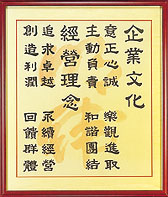 企業文化
意正心誠　樂觀進取
主動負責　和諧團結
經營理念
追求卓越　永續經營
創造利潤　回饋群體